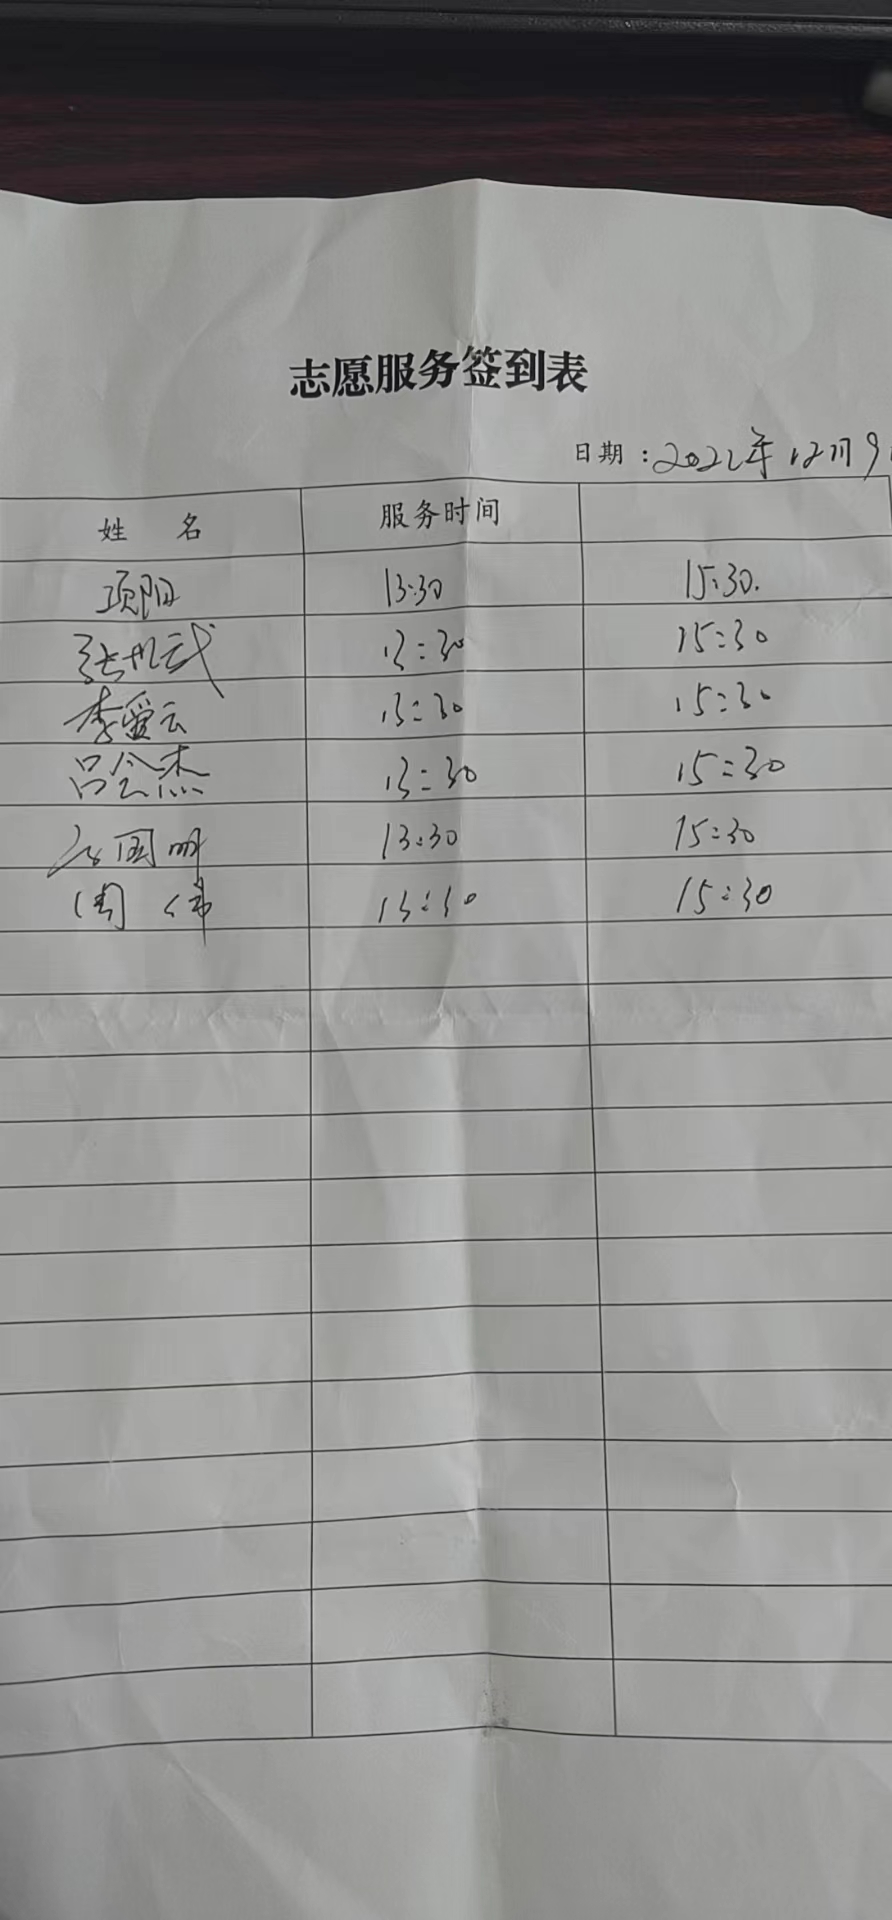 志愿服务签到表
日期：2022年12月9
姓 名 服务时间
项阳 13:30 15:30.
张 武 13:30 15:30
李爱云 13:30 15:30
吕会杰 13:30 15:30
国明 13:30 15:30
周伟 13:30 15:30